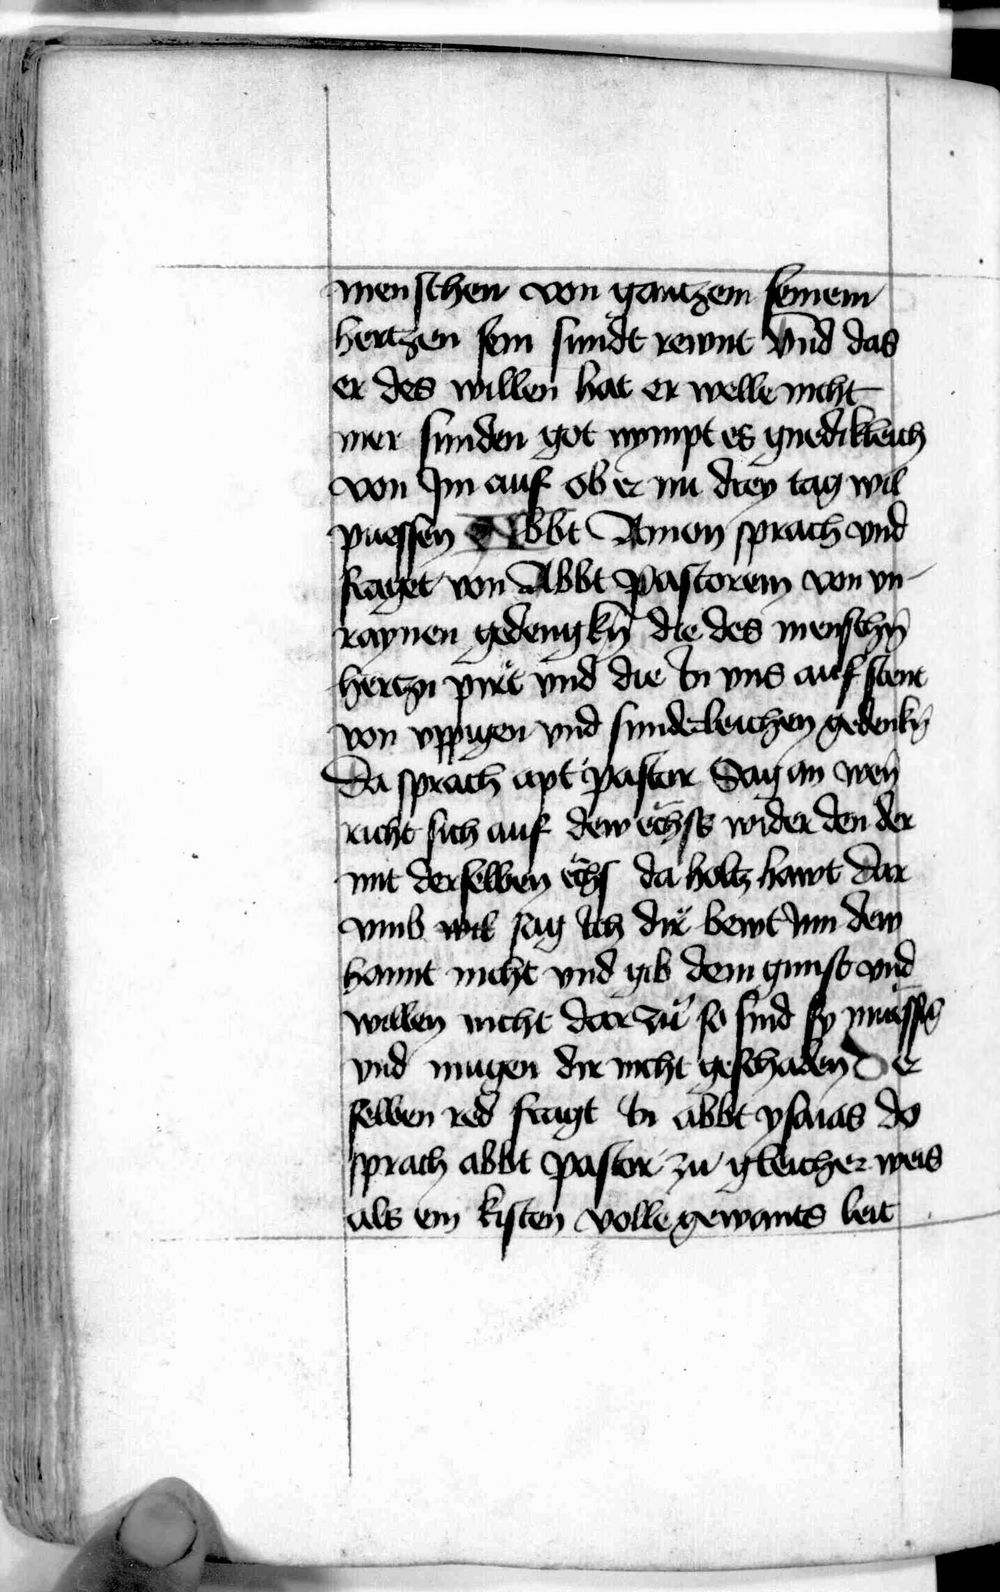 menschen von gantzem seinem
hertzen sein sundt rewnt vnd das
er des willen hat er welle nicht
mer sunden got nympt es gnedikleich
von Im auf ob er nu drey tag wil
puessen Abbt Amon sprach vnd
fraget von Abbt Pastorem von vn
raynen gedengkn̄ die des menschn̄
hertzn pirt vnd die In vns auf stent
von vppigen vnd sunderleichen gedenkn̄
Da sprach apt pastor Sag an wen̄
richt sich auf dew echss wider den der
mit derselben echs da holtz hawt Dar
vmb sag Ich dir bewt Inn dew
hannt nicht vnd gib dein gunst vnd
willen nicht dar zu so sind sy muessig
vnd mugen dir nicht geschaden Der
selben red fragt In abbt ysaias do
sprach abbt pastor zu gleicher weis
als ein kisten volle gewants leit